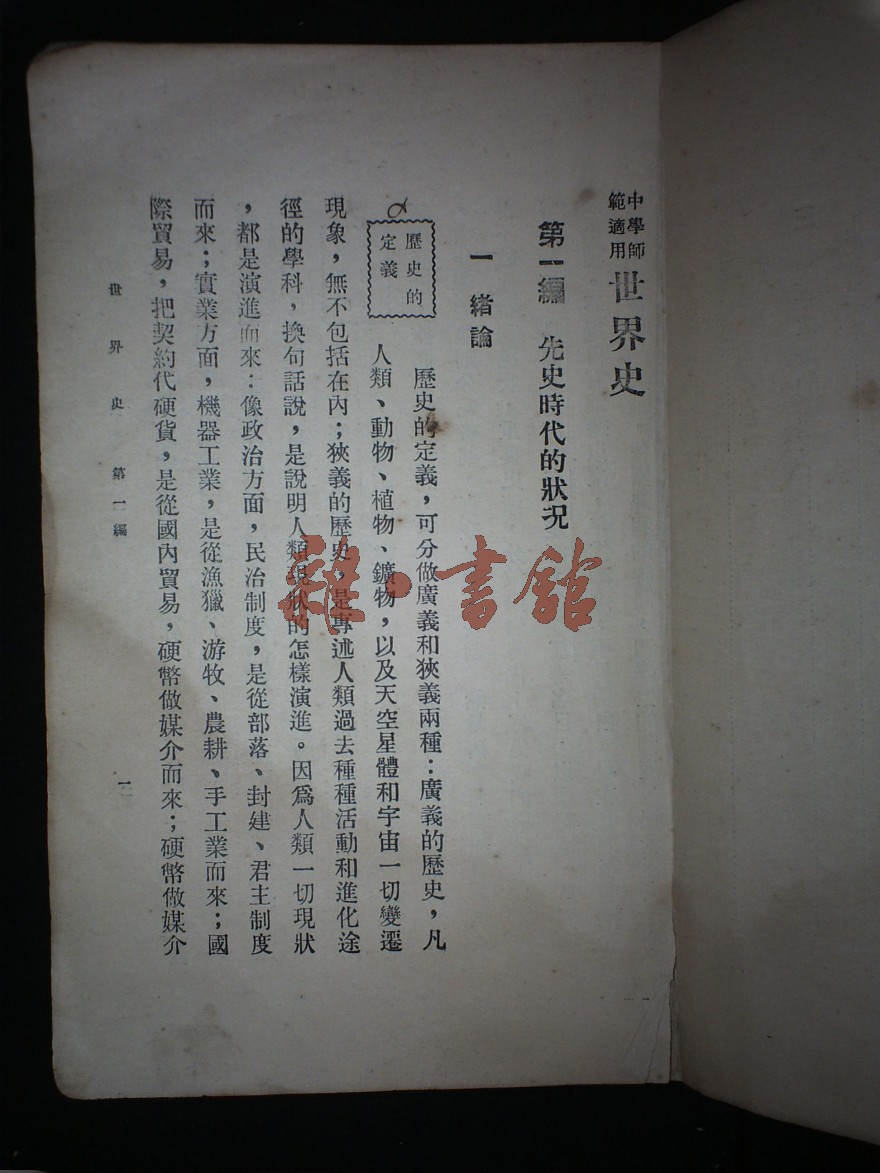 中學師
範適用
世界史
第一編　先史時代的狀况
一　緒論
歷史的
定義
歷史的定義，可分做廣義和狹義兩種：廣義的歷史，凡
人類、動物、植物、鑛物，以及天空星體和宇宙一切變遷
現象，無不包括在內；狹義的歷史，是專述人類過去種種活動和進化途
徑的學科，換句話說，是說明人類現狀的怎樣演進。因爲人類一切現狀
，都是演進而來：像政治方面，民治制度，是從部落、封建、君主制度
而來；實業方面，機器工業，是從漁獵、游牧、農耕、手工業而來；國
際貿易，把契約代硬貨，是從國內貿易，硬幣做媒介而來；硬幣做媒介
世界史　第一編
一
雜·書館